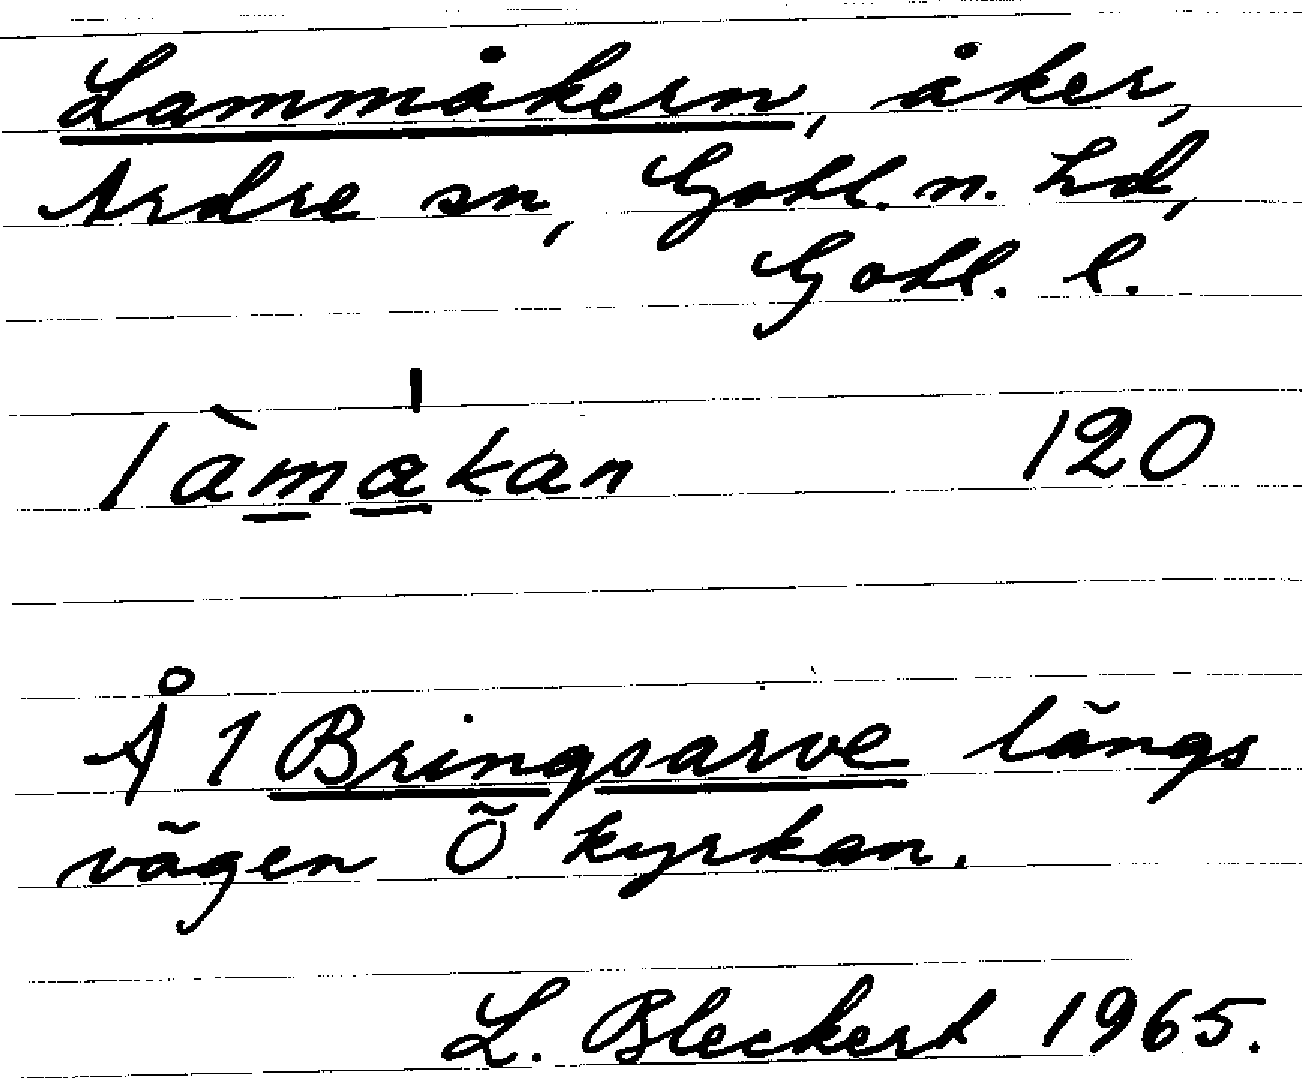 Lammåkern, åker,
Ardre sn, Gotl. n. hd,
Gotl. l.
làmakan 120
Å 1 Bringsarve längs
vägen Ö kyrkan.
L. Bleckert 1965.